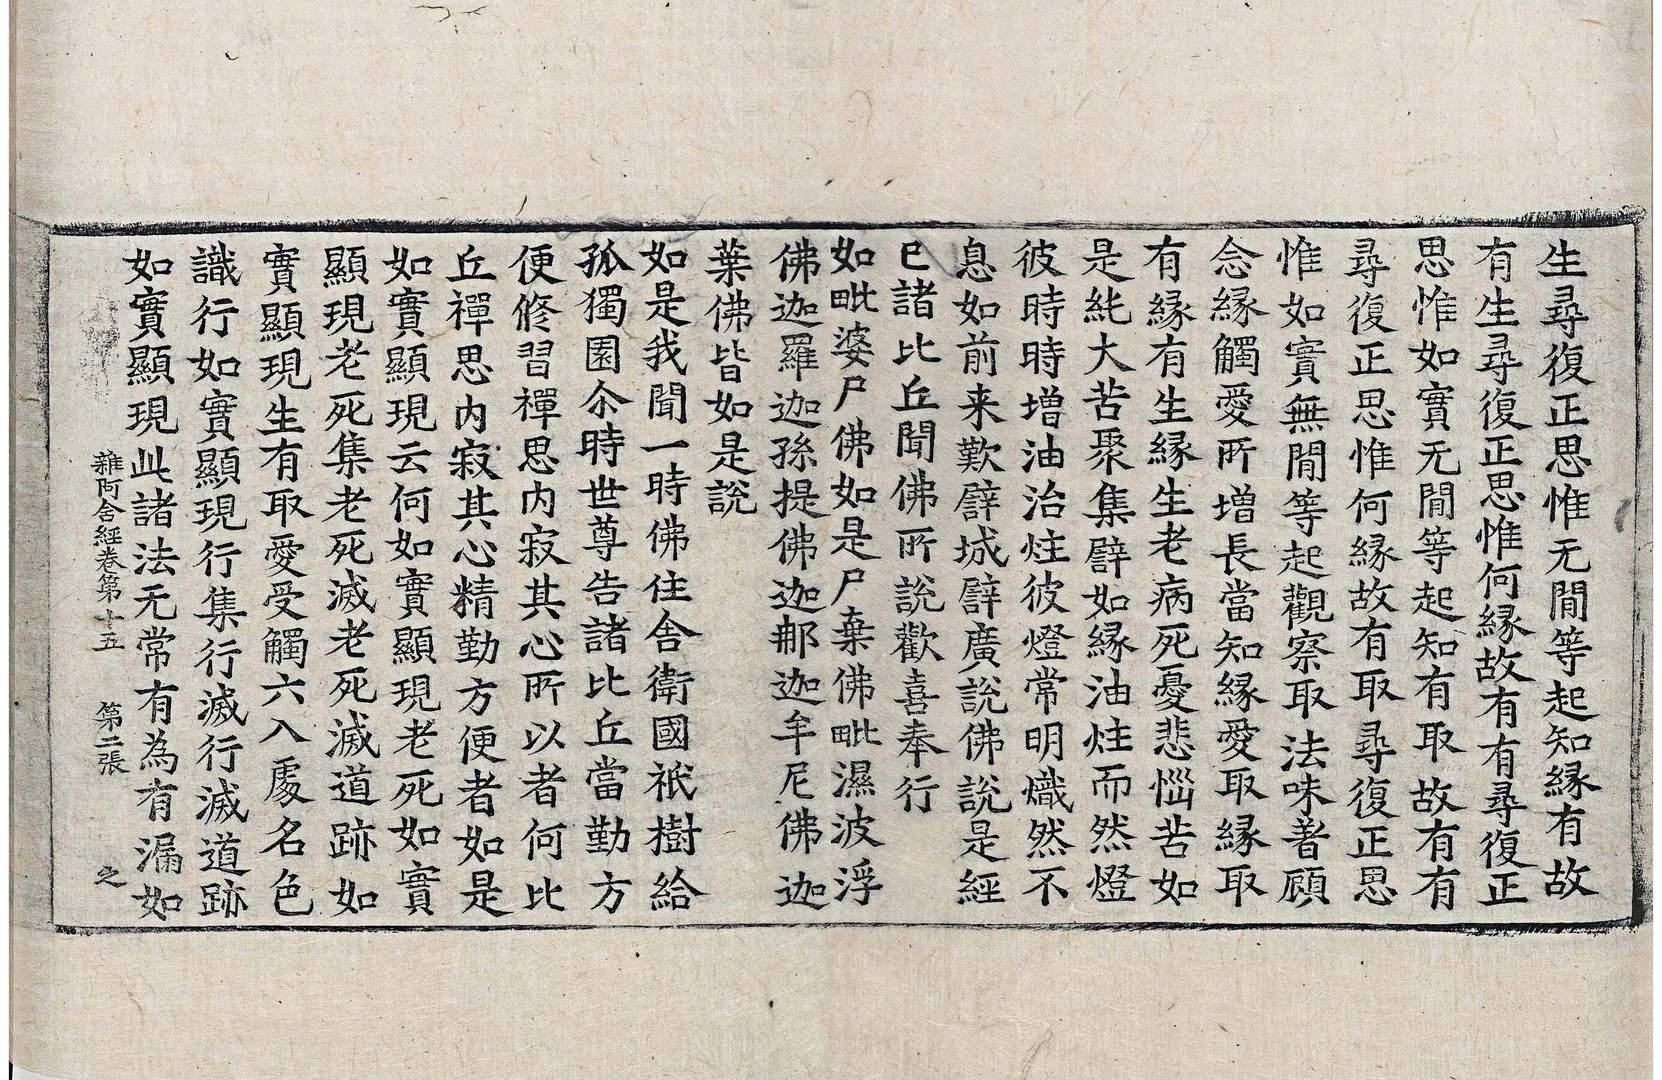 生尋復正思惟无閒等起知緣有故
有生尋復正思惟何緣故有有尋復正
思惟如實无閒等起知有取故有有
尋復正思惟何緣故有取尋復正思
惟如實無閒等起觀察取法味著顧
念緣觸愛所增長當知緣愛取緣取
有緣有生緣生老病死憂悲惱苦如
是純大苦聚集譬如緣油炷而然燈
彼時時增油治炷彼燈常明熾然不
息如前来歎譬城譬廣說佛說是經
已諸比丘聞佛所說歡喜奉行
如毗婆尸佛如是尸棄佛毗濕波浮
佛迦羅迦孫提佛迦那迦牟尼佛迦
葉佛皆如是說
如是我聞一時佛住舍衛國祇樹給
孤獨園尒時世尊告諸比丘當勤方
便修習禪思内寂其心所以者何比
丘禪思内寂其心精勤方便者如是
如實顯現云何如實顯現老死如實
顯現老死集老死滅老死滅道跡如
實顯現生有取愛受觸六入處名色
識行如實顯現行集行滅行滅道跡
如實顯現此諸法无常有為有漏如
雜阿含經卷第十五 第二張 之